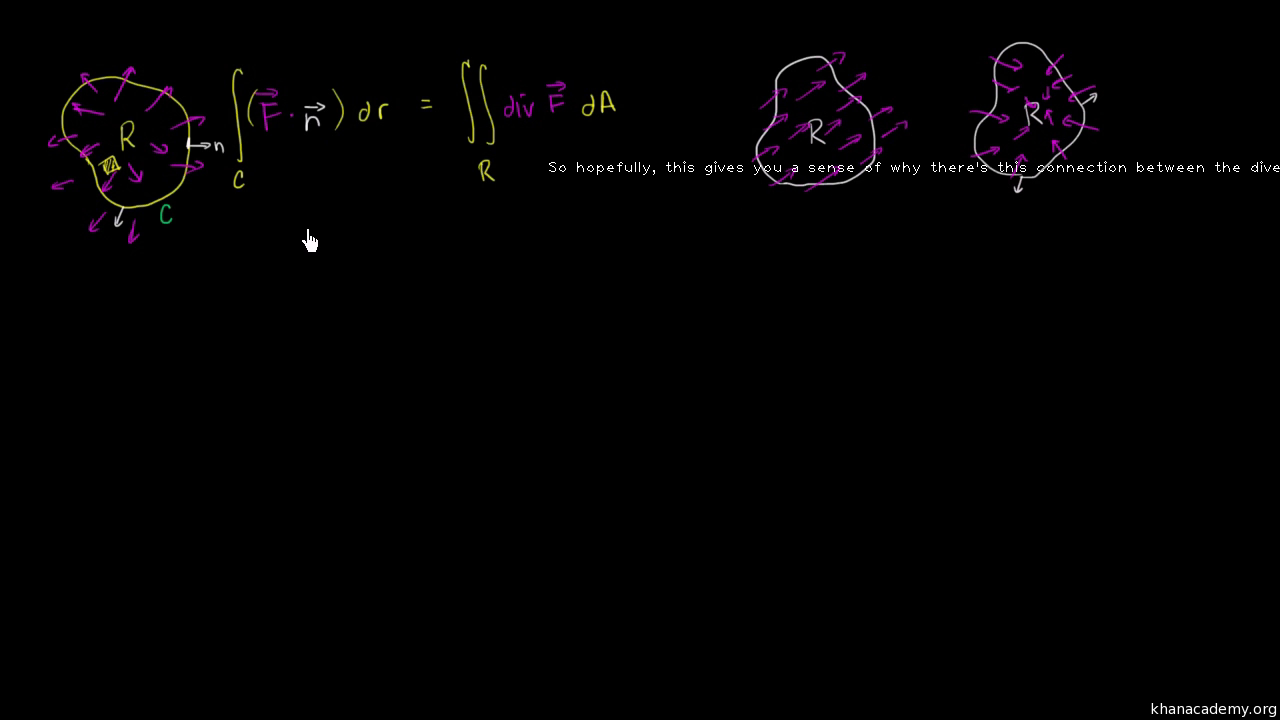 R
n
C
∫_C (F⃗ · n⃗) dr = ∬_R div F⃗ dA
R
R
So hopefully, this gives you a sense of why there's this connection between the dive
khanacademy.org